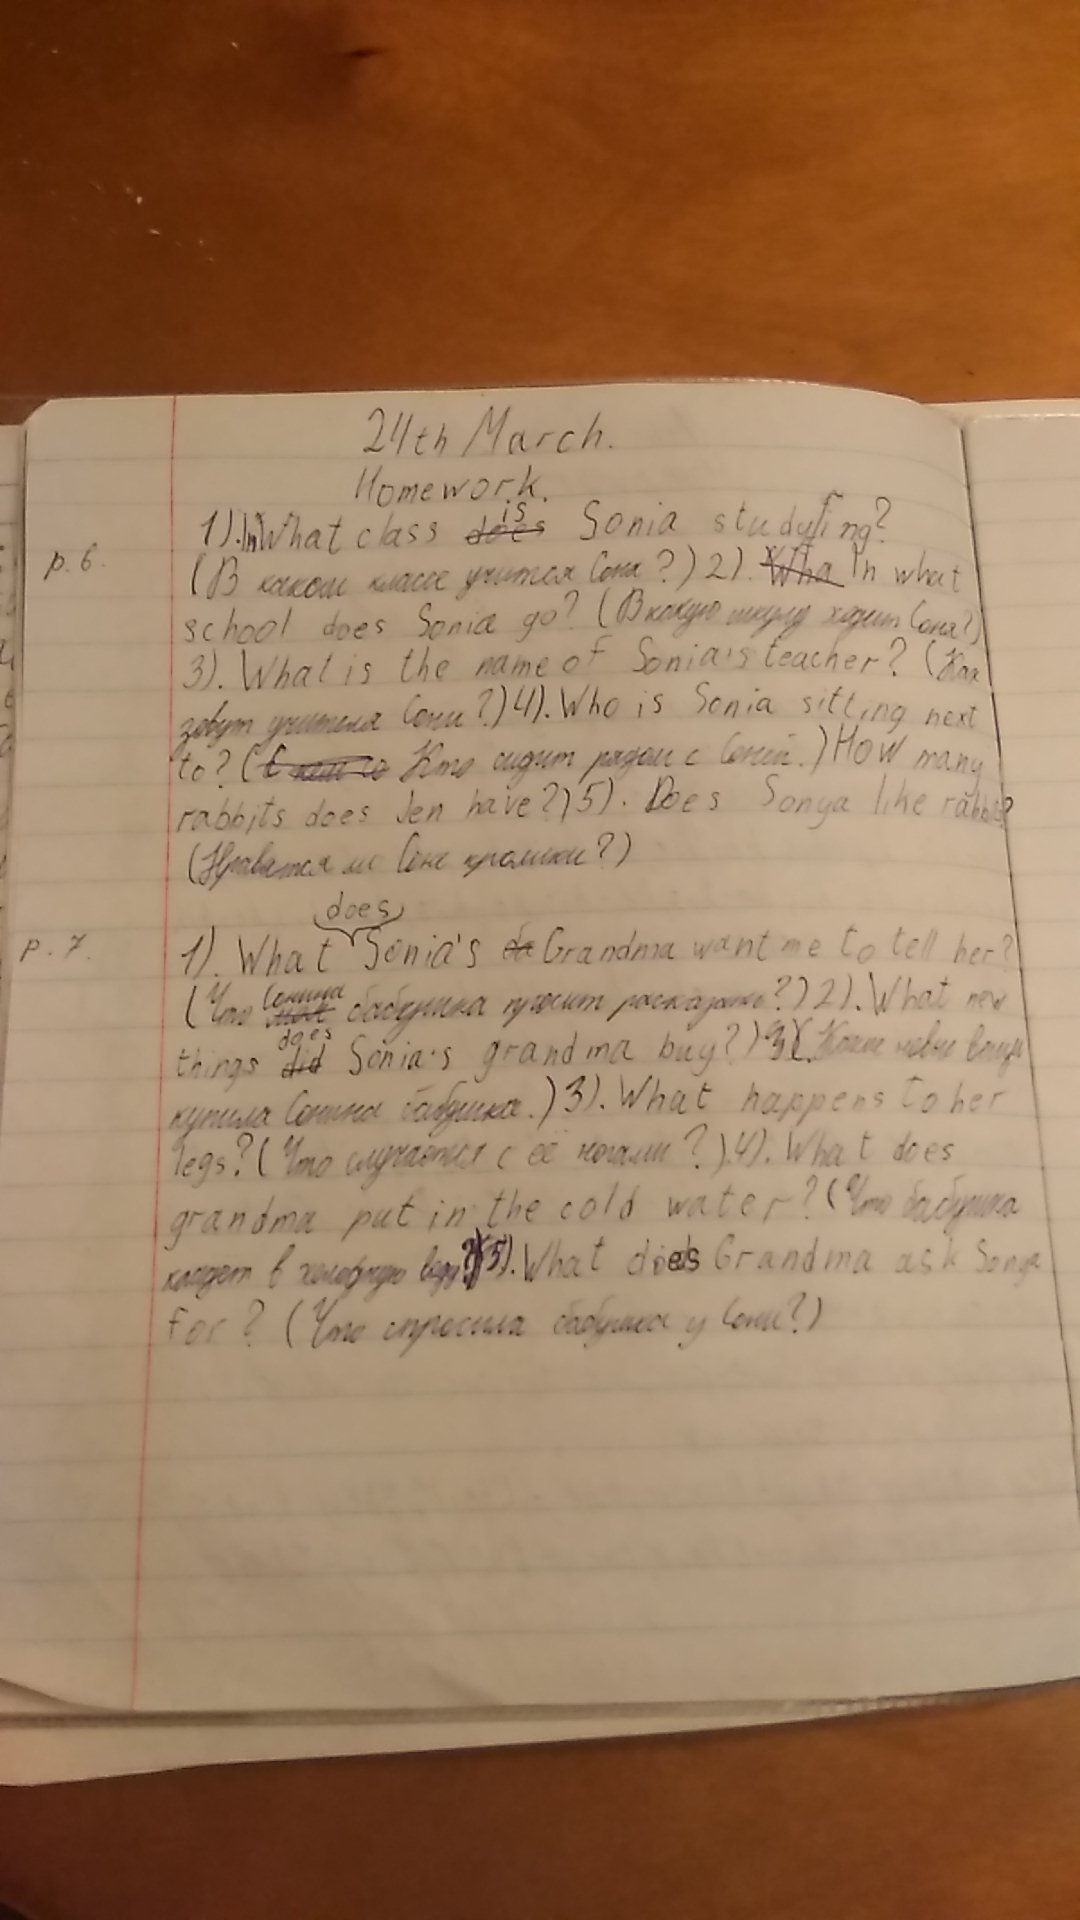 24th March.
Homework.
1). In What class does is Sonia studying?
p. 6. (В каком классе учится Соня?) 2). Wha In what
school does Sonia go? (В какую школу ходит Соня?)
3). What is the name of Sonia's teacher? (Как
зовут учителя Сони?) 4). Who is Sonia sitting next
to? (С кем со Кто сидит рядом с Соней.) How many
rabbits does Jen have?) 5). Does Sonya like rabbits?
(Нравятся ли Соне кролики?)
does
p. 7. 1). What Sonia's do Grandma want me to tell her?
(Что Сонина бабушка просит расказать?) 2). What new
things did does Sonia's grandma buy?) 3(. Какие новые вещи
купила Сонина бабушка.) 3). What happens to her
legs? (Что случается с её ногами?). 4). What does
grandma put in the cold water? (Что бабушка
кладет в холодную воду?) (5). What does Grandma ask Sonya
for? (Что спросила бабушка у Сони?)